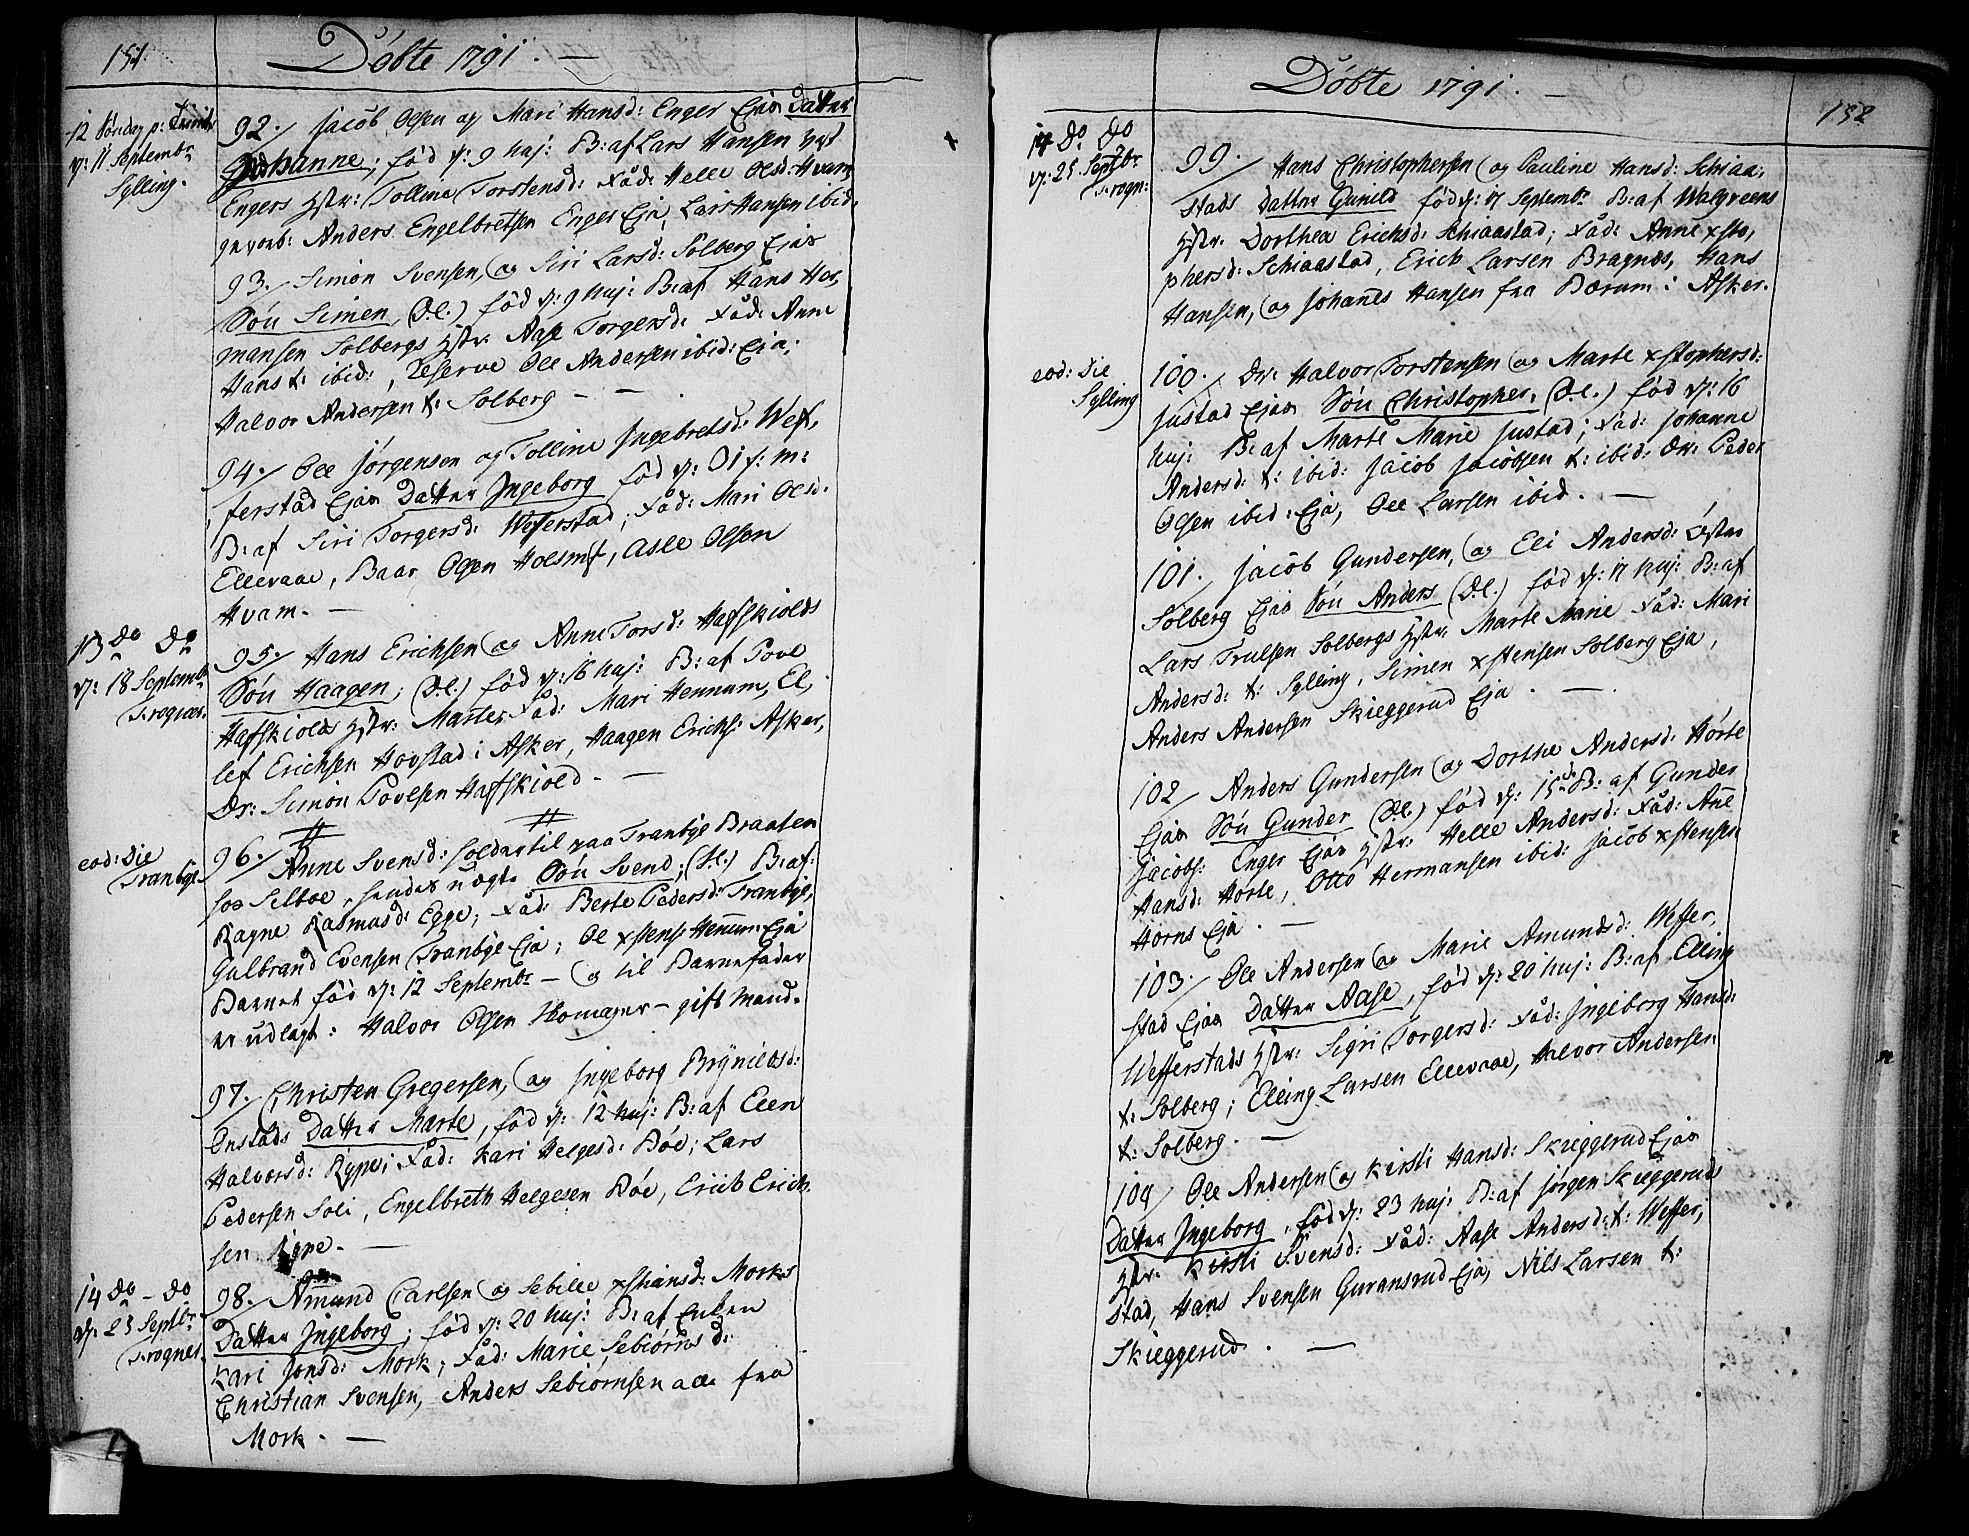 151.
Döbte 1791. —
12 Søndag p: Trinit:
d: 11 Septembr
Sylling.
92./ Jacob Olsen og Mari Hansd: Enger Ejæ Datter
Johanne; fød d: 9 huj: B: af Lars Hansen
Engers Hstr: Tollina Torstensd: Fád: Helle Olsd: Hvam
Anders Engelbretsen Enger Eja, Lars Hansen ibid:
93./ Simon Svensen, og Siri Larsd: Solberg Ejæ
Søn Simen, (D.l.) fød d: 9 huj: B: af Hans Her,
mansen Solbergs Hstr: Aase Torgersd: Fád: Anne
Hans t: ibid:, Reserve Ole Andersen ibid: Eja;
Halvor Andersen t: Solberg — —
94./ Ole Jörgensen og Tolline Ingebretsd: Wef,
ferstad Ejæ Datter Ingeborg fød d: 31 f: m:
B: af Siri Torgersd: Wefferstad; Fád: Mari Olsd:
Ellevaae, Baar Olsen Holsm, Asle Olsen
Hvam. —
13 do do
d: 18 Septembr
Frogner.
95./ Hans Erichsen og Anne Torsd: Haffskiolds
Søn Haagen; (D.l.) fød d: 16 huj: B: af Povel
Haffskiolds Hstr: Marte, Fád: Mari Hennum, El,
lef Erichsen Hovstad i Asker, Haagen Erichs: Asker,
Dr: Simon Povelsen Haffskiold. —
eod: die
Tranbye
96./ Anne Svensd: Soldattil paa Tranbye Braaten
hos Selboe, hendes uægte Søn Svend; (D.l.) B: af:
Ragne Rasmusd: Egge; Fád: Berte Pedersd: Tranbye,
Gulbrand Evensen Tranbye Eja; Ole xstens: Hennum Eja
Barnet fød d: 12 Septembr — og til Barnefader
er udlagt: Halvor Olsen — gift Mand.
97./ Christen Gregersen, og Ingeborg Brynildsd:
Onstads Datter Marte, fød d: 12 huj: B: af Elen
Halvorsd: Rype; Fád: Kari Helgesd: Böe; Lars
Pedersen Soli, Engelbreth Helgesen Böe, Erich Erich,
sen Rype. —
14 do — do
d: 25 Septbr
Frogner.
98./ Amund Carlsen og Sebille xstiansd: Morks
Datter Ingeborg; fød d: 20 huj: B: af Enken
Kari Jonsd: Mork; Fád: Marie Sebiörnsd:
Christian Svensen, Anders Sebiörnsen alle fra
Mork. —
Döbte 1791. —
152
14 do do
d: 25 Septbr
Frogn:
99./ Hans Christophersen og Pauline Hansd: Schiaa,
stads Datter Gunild fød d: 17 Septembr B: af Walgreens
Hstr: Dorthea Erichsd: Schiaastad; Fád: Anne xsto,
phersd: Schiaastad, Erich Larsen Bragnes, Hans
Hansen, og Johannes Hansen fra Bærum i Asker.
eod: die
Sylling
100./ Dr: Halvor Torstensen og Marte xstophersd:
Justad Ejæ Søn Christopher, (D.l.) fød d: 16
huj: B: af Marte Marie Justad; Fád: Johanne
Andersd: t: ibid: Jacob Jacobsen t: ibid: Dr: Peder
Olsen ibid: Eja, Ole Larsen ibid. —
101./ Jacob Gundersen, og Eli Andersd: Öster
Solberg Ejæ Søn Anders (D.l.) fød d: 17 huj: B: af
Lars Trulsen Solbergs Hstr: Marte Marie Fád: Mari
Andersd: t: Sylling, Simen xstensen Solberg Eja,
Anders Andersen Skieggerud Eja. —
102/ Anders Gundersen og Dorthe Andersd: Hörte
Ejæ Søn Gunder (D.l.) fød d: 15de B: af Gunder
Jacobs: Enger Ejæ Hstr: Helle Andersd: Fád: Anne
Hansd: Hörte, Otto Hermansen ibid: Jacob xstensen
Horns Eja. —
103./ Ole Andersen og Marie Amundsd: Weffer,
stad Ejæ Datter Aase, fød d: 20 huj: B: af Elling
Wefferstads Hstr: Sigri Torgersd: Fád: Ingeborg Hansd:
t: Solberg; Elling Larsen Ellevaae, Halvor Andersen
t: Solberg. —
104/ Ole Andersen og Kirsti Hansd: Skieggerud Ejæ
Datter Ingeborg, fød d: 23 huj: B: af Jörgen Skieggeruds
Hstr: Kirsti Svensd: Fád: Aase Andersd: t: Weffer,
stad, Hans Svensen Guransrud Eja, Nils Larsen t:
Skieggerud. —